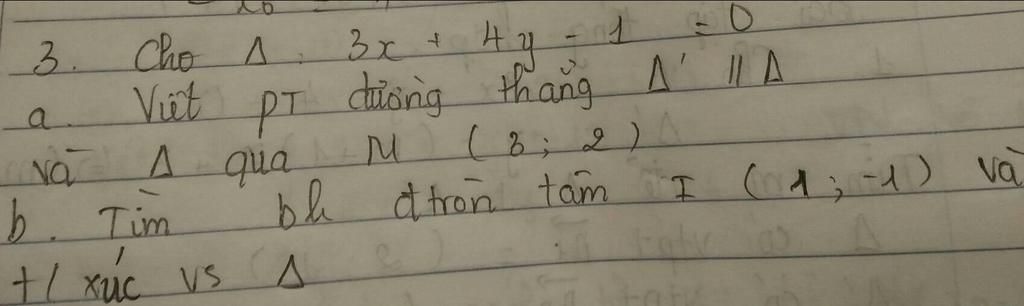 3. Cho Δ : 3x + 4y - 1 = 0
a. Viết pT đường thẳng Δ' // Δ
và Δ qua M (3; 2)
b. Tìm bk đtròn tâm I (1; -1) và
t/ xúc vs Δ